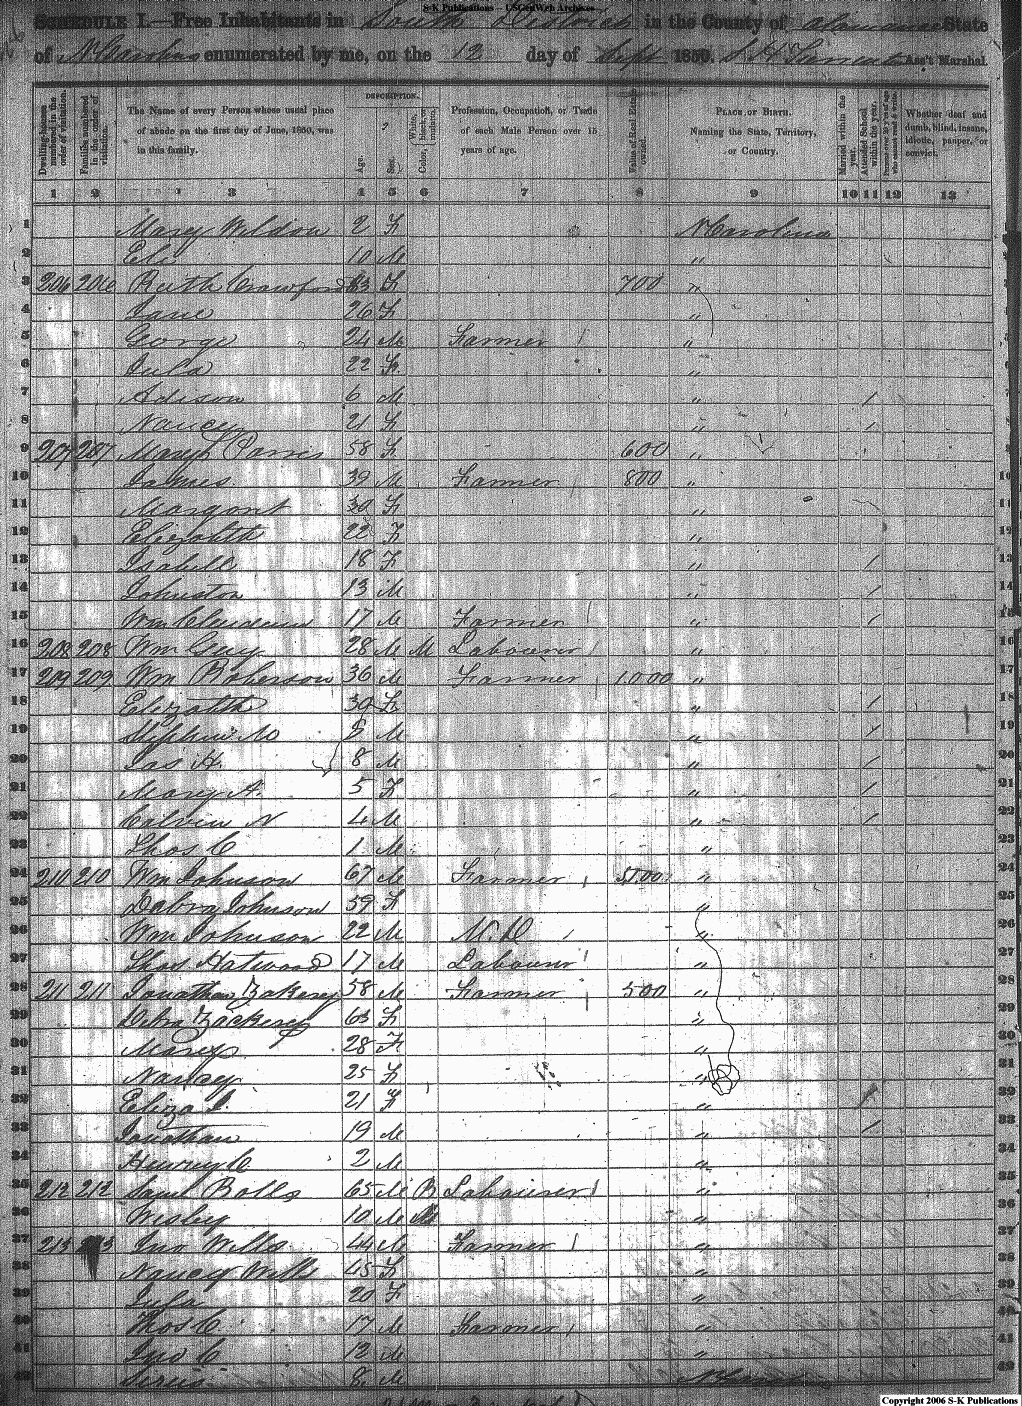 S-K Publications - USGenWeb Archives
SCHEDULE I.—Free Inhabitants in South District in the County of Alamance State
of N Carolina enumerated by me, on the 12 day of Sept 1850. Ass't Marshal.
Dwelling-houses numbered in the order of visitation.
Families numbered in the order of visitation.
The Name of every Person whose usual place of abode on the first day of June, 1850, was in this family.
DESCRIPTION.
Age.
Sex.
Color, White, black, or mulatto.
Profession, Occupation, or Trade of each Male Person over 15 years of age.
Value of Real Estate owned.
PLACE OF BIRTH. Naming the State, Territory, or Country.
Married within the year.
Attended School within the year.
Whether deaf and dumb, blind, insane, idiotic, pauper, or convict.
1 2 3 4 5 6 7 8 9 10 11 12 13
1 Mary Weldon 2 F N Carolina
2 Eli 10 M "
3 206 206 Ruth Crawford 63 F 700 "
4 Jane 26 F "
5 George 24 M Farmer "
6 Jula 22 F "
7 Adison 6 M " /
8 Nancy 21 F " /
9 207 207 Mary Parris 58 F 600 "
10 James 39 M Farmer 800 "
11 Margant 30 F "
12 Elizabth 22 F "
13 Isabell 18 F " /
14 Johnston 13 M " /
15 Wm 17 M Farmer " /
16 208 208 Wm Guy 28 M M Labourer "
17 209 209 Wm Roberson 36 M Farmer 1000 "
18 Elizabth 30 F " /
19 Stephen M M " /
20 Jas H. 8 M " /
21 Mary A. 5 F " /
22 Calvin N 4 M " /
23 Thos C 1 M "
24 210 210 Wm Johnson 67 M Farmer "
25 Debra Johnson 59 F "
26 Wm Johnson 22 M M.D "
27 Thos Hatwood 17 M Labourer "
28 211 211 Jonathan Zakery 58 M Farmer 500 "
29 Debra Zackery 63 F "
30 Mary 28 F "
31 Nancy 25 F "
32 Eliza J. 21 F " /
33 Jonathan 19 M " /
34 Henry C 2 M "
35 212 212 Saml Bolls 65 M B Labourer "
36 Wesley 10 M "
37 213 Jno Wills 44 M Farmer "
38 Nancy Wills 45 F "
39 Jula 20 F "
40 Thos C. 17 M Farmer "
41 Jno C 12 M "
42 8 M N Carol
Copyright 2006 S-K Publications